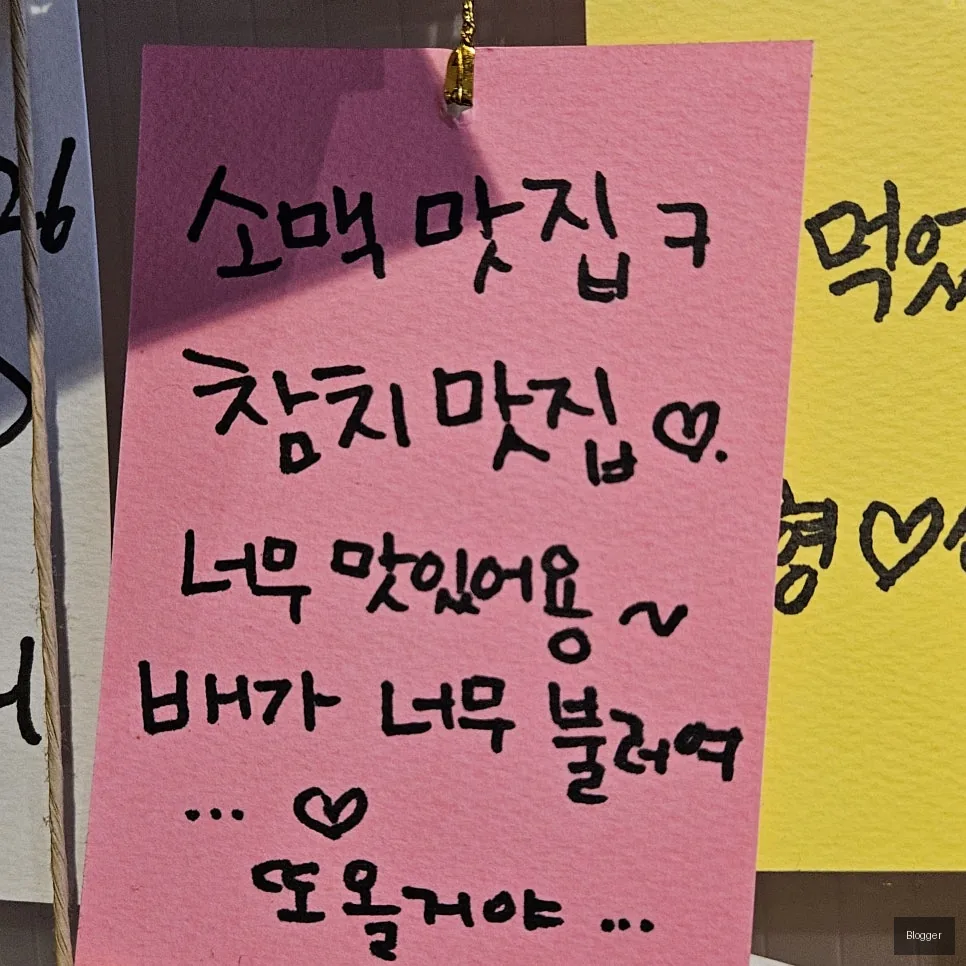 소맥 맛집 ㅋ
참치 맛집 ♡.
너무 맛있어용 ~
배가 너무 불러여
... ♡
또 올거야 ...
26
먹었
형 ♡
Blogger